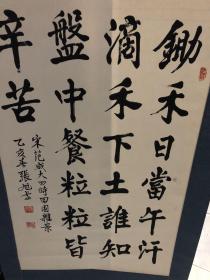 鋤禾日當午汗
滴禾下土誰知
盤中餐粒粒皆
辛苦
宋范成大四時田園雜景
乙亥年張旭書